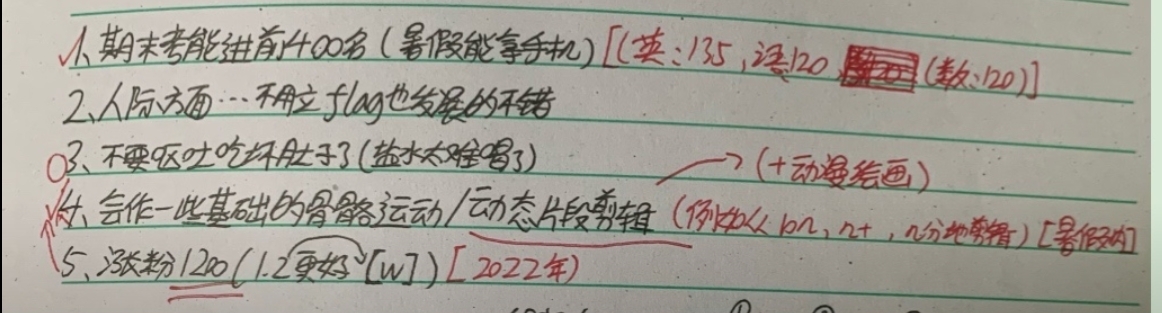 1、期末考能进前400名(暑假能拿手机)[(英:135,语120,(数:120)]
2、人际方面…不用立flag也发展的不错
3、不要呕吐吃坏肚子了(盐水太难喝了)
→(+动漫绘画)
4、会作一些基础的骨骼运动/动态片段剪辑(例如 [暑假内]
5、涨粉1200(1.2更好[w])[2022年)